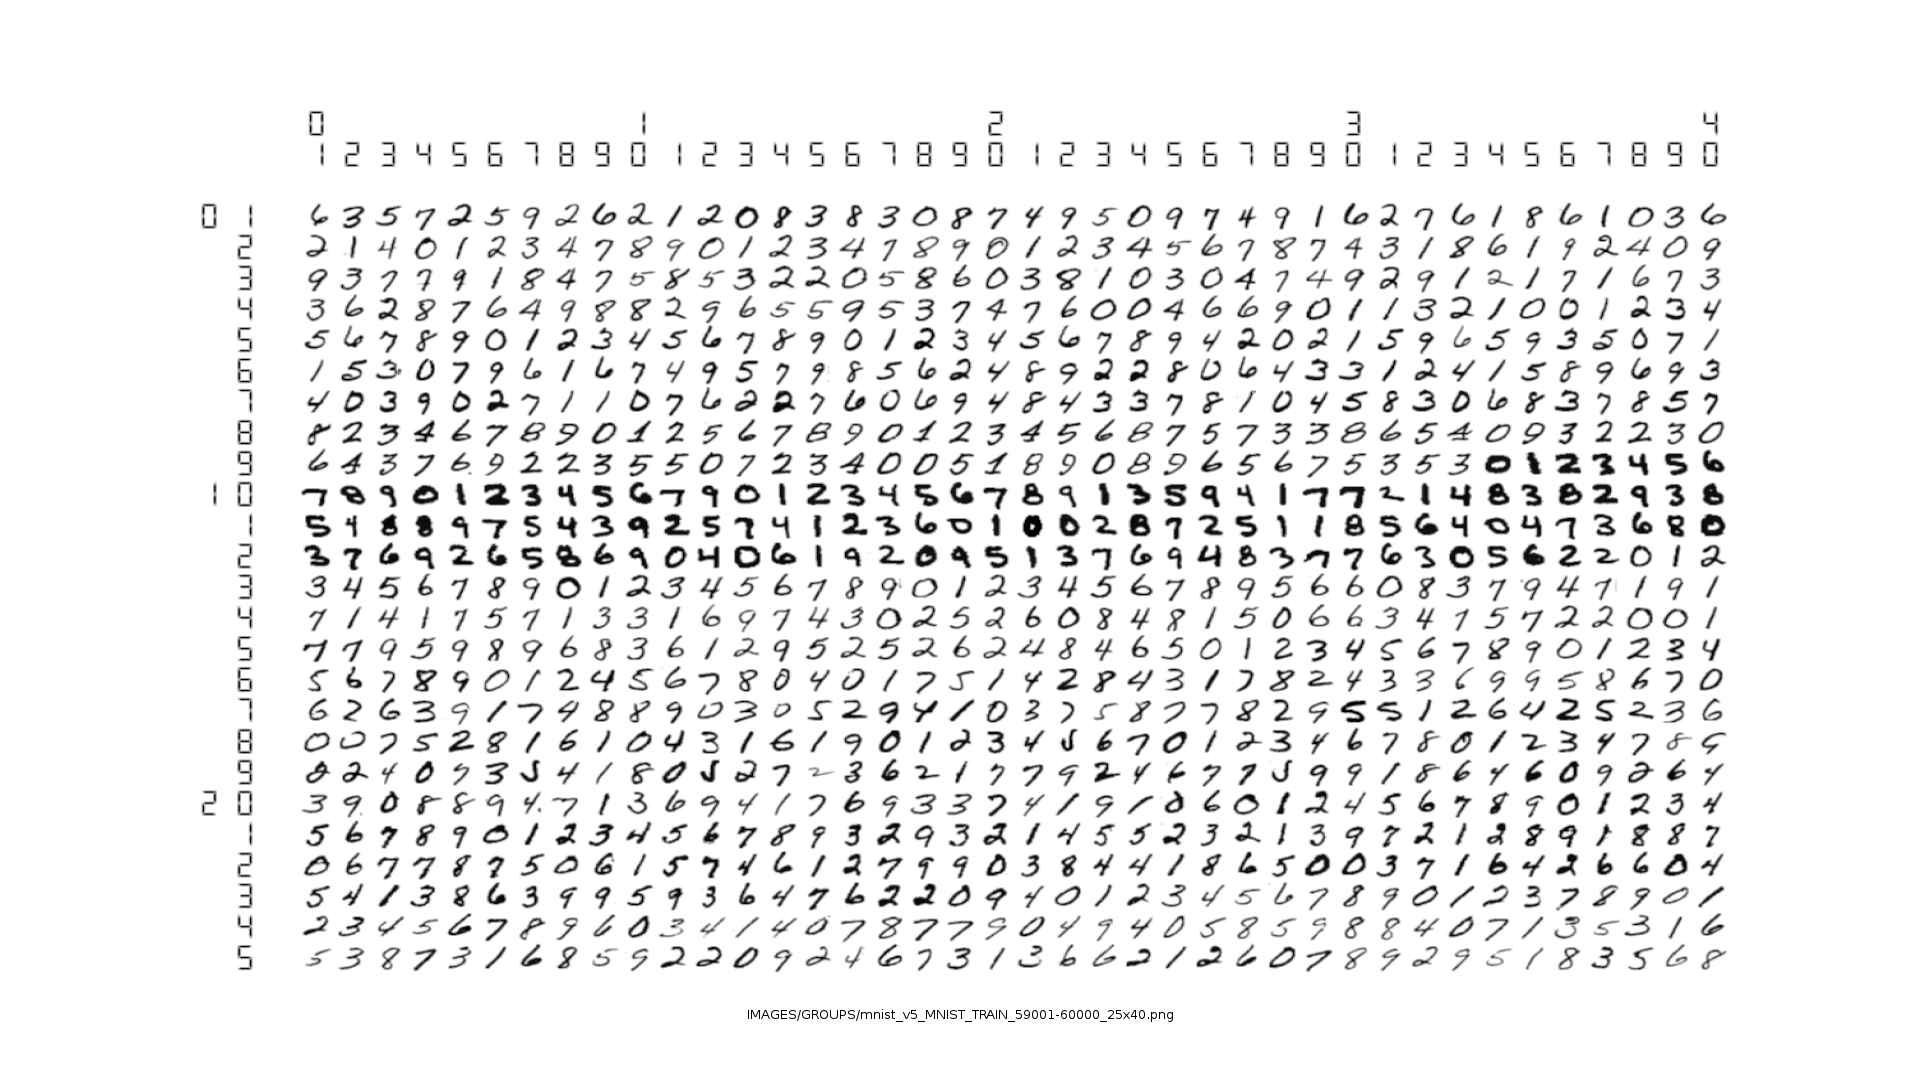 0 1 2 3 4
1 2 3 4 5 6 7 8 9 0 1 2 3 4 5 6 7 8 9 0 1 2 3 4 5 6 7 8 9 0 1 2 3 4 5 6 7 8 9 0
0 1 6 3 5 7 2 5 9 2 6 2 1 2 0 8 3 8 3 0 8 7 4 9 5 0 9 7 4 9 1 6 2 7 6 1 8 6 1 0 3 6
2 2 1 4 0 1 2 3 4 7 8 9 0 1 2 3 4 7 8 9 0 1 2 3 4 5 6 7 8 7 4 3 1 8 6 1 9 2 4 0 9
3 9 3 7 7 9 1 8 4 7 5 8 5 3 2 2 0 5 8 6 0 3 8 1 0 3 0 4 7 4 9 2 9 1 2 1 7 1 6 7 3
4 3 6 2 8 7 6 4 9 8 8 2 9 6 5 5 9 5 3 7 4 7 6 0 0 4 6 6 9 0 1 1 3 2 1 0 0 1 2 3 4
5 5 6 7 8 9 0 1 2 3 4 5 6 7 8 9 0 1 2 3 4 5 6 7 8 9 4 2 0 2 1 5 9 6 5 9 3 5 0 7 1
6 1 5 3 0 7 9 6 1 6 7 4 9 5 7 9 8 5 6 2 4 8 9 2 2 8 0 6 4 3 3 1 2 4 1 5 8 9 6 9 3
7 4 0 3 9 0 2 7 1 1 0 7 6 2 2 7 6 0 6 9 4 8 4 3 3 7 8 1 0 4 5 8 3 0 6 8 3 7 8 5 7
8 8 2 3 4 6 7 8 9 0 1 2 5 6 7 8 9 0 1 2 3 4 5 6 8 7 5 7 3 3 8 6 5 4 0 9 3 2 2 3 0
9 6 4 3 7 6 9 2 2 3 5 5 0 7 2 3 4 0 0 5 1 8 9 0 8 9 6 5 6 7 5 3 5 3 0 1 2 3 4 5 6
1 0 7 8 9 0 1 2 3 4 5 6 7 9 0 1 2 3 4 5 6 7 8 9 1 3 5 9 4 1 7 7 2 1 4 8 3 8 2 9 3 8
1 5 4 8 8 9 7 5 4 3 9 2 5 7 4 1 2 3 6 0 1 0 0 2 8 7 2 5 1 1 8 5 6 4 0 4 7 3 6 8 0
2 3 7 6 9 2 6 5 8 6 9 0 4 0 6 1 9 2 0 9 5 1 3 7 6 9 4 8 3 7 7 6 3 0 5 6 2 2 0 1 2
3 3 4 5 6 7 8 9 0 1 2 3 4 5 6 7 8 9 0 1 2 3 4 5 6 7 8 9 5 6 6 0 8 3 7 9 4 7 1 9 1
4 7 1 4 1 7 5 7 1 3 3 1 6 9 7 4 3 0 2 5 2 6 0 8 4 8 1 5 0 6 6 3 4 7 5 7 2 2 0 0 1
5 7 7 9 5 9 8 9 6 8 3 6 1 2 9 5 2 5 2 6 2 4 8 4 6 5 0 1 2 3 4 5 6 7 8 9 0 1 2 3 4
6 5 6 7 8 9 0 1 2 4 5 6 7 8 0 4 0 1 7 5 1 4 2 8 4 3 1 7 8 2 4 3 3 6 9 9 5 8 6 7 0
7 6 2 6 3 9 1 7 4 8 8 9 0 3 0 5 2 9 4 1 0 3 7 5 8 7 7 8 2 9 5 5 1 2 6 4 2 5 2 3 6
8 0 0 7 5 2 8 1 6 1 0 4 3 1 6 1 9 0 1 2 3 4 5 6 7 0 1 2 3 4 6 7 8 0 1 2 3 4 7 8 9
9 0 2 4 0 7 3 5 4 1 8 0 5 2 7 2 3 6 2 1 7 7 9 2 4 6 7 7 5 9 9 1 8 6 4 6 0 9 2 6 4
2 0 3 9 0 8 8 9 4 7 1 3 6 9 4 1 7 6 9 3 3 7 4 1 9 1 0 6 0 1 2 4 5 6 7 8 9 0 1 2 3 4
1 5 6 7 8 9 0 1 2 3 4 5 6 7 8 9 3 2 9 3 2 1 4 5 5 2 3 2 1 3 9 7 2 1 2 8 9 1 8 8 7
2 0 6 7 7 8 7 5 0 6 1 5 7 4 6 1 2 7 9 9 0 3 8 4 4 1 8 6 5 0 0 3 7 1 6 4 2 6 6 0 4
3 5 4 1 3 8 6 3 9 9 5 9 3 6 4 7 6 2 2 0 9 4 0 1 2 3 4 5 6 7 8 9 0 1 2 3 7 8 9 0 1
4 2 3 4 5 6 7 8 9 6 0 3 4 1 4 0 7 8 7 7 9 0 4 9 4 0 5 8 5 9 8 8 4 0 7 1 3 5 3 1 6
5 5 3 8 7 3 1 6 8 5 9 2 2 0 9 2 4 6 7 3 1 3 6 6 2 1 2 6 0 7 8 9 2 9 5 1 8 3 5 6 8
IMAGES/GROUPS/mnist_v5_MNIST_TRAIN_59001-60000_25x40.png